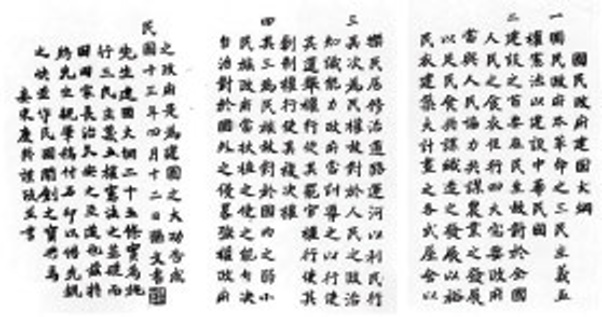 國民政府建國大綱
一 國民政府本革命之三民主義五
權憲法以建設中華民國
二 建設之首要在民生故對於全國
人民之食衣住行四大需要政府
當與人民協力共謀農業之發展
以足民食共謀織造之發展以裕
民衣建築大計畫之各式屋舍以
樂民居修治道路運河以利民行
三 其次為民權故對於人民之政治
知識能力政府當訓導之以行使
其選舉權行使其罷官權行使其
創制權行使其複決權
四 其三為民族故對於國內之弱小
民族政府當扶植之使之能自決
自治對於國外之侵略強權政府
之政府是為建國之大功告成
民國十三年四月十二日孫文書
先生建國大綱二十五條實為施
行三民主義五權憲法之基礎而
國家長治久安之道也茲特
將先生親筆稿付石印以先覩
之快並守民國開創之寶典焉
妻宋慶齡謹跋並書